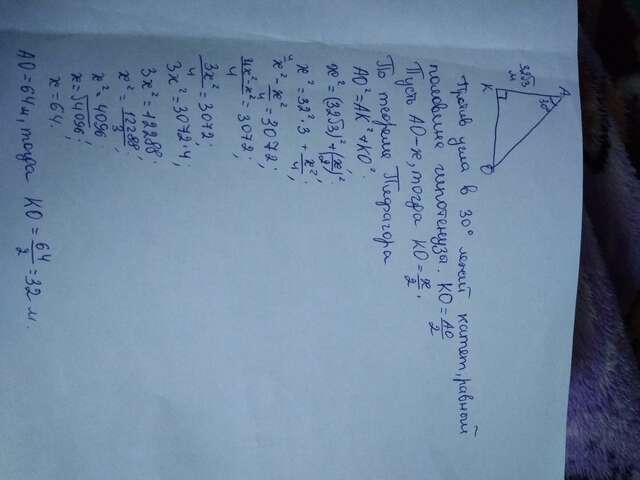 A
30°
32√3
м
K
O
Против угла в 30° лежит катет, равный
половине гипотенузы. KO = AO/2
Пусть AO - x, тогда KO = x/2,
По теореме Пифагора
AO² = AK² + KO²:
x² = (32√3)² + (x/2)²;
x² = 32² · 3 + x²/4;
x² - x²/4 = 3072;
4x² - x²/4 = 3072;
3x²/4 = 3072;
3x² = 3072 · 4;
3x² = 12288;
x² = 12288/3;
x² = 4096;
x = √4096;
x = 64.
AO = 64 м, тогда KO = 64/2 = 32 м.